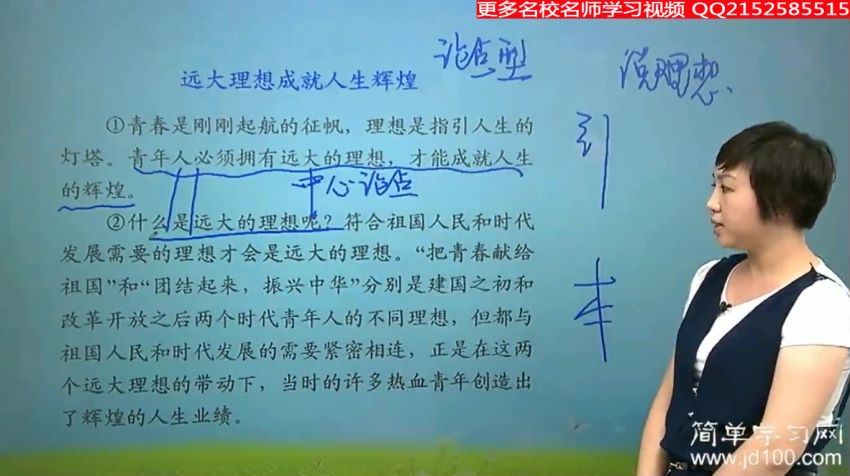 更多名校名师学习视频 QQ2152585515
论点型
谈理想、
远大理想成就人生辉煌
①青春是刚刚起航的征帆，理想是指引人生的
灯塔。青年人必须拥有远大的理想，才能成就人生
的辉煌。
中心论点
引
②什么是远大的理想呢？符合祖国人民和时代
发展需要的理想才会是远大的理想。“把青春献给
祖国”和“团结起来，振兴中华”分别是建国之初和
改革开放之后两个时代青年人的不同理想，但都与
祖国人民和时代发展的需要紧密相连，正是在这两
个远大理想的带动下，当时的许多热血青年创造出
了辉煌的人生业绩。
本
简单学习网
www.jd100.com